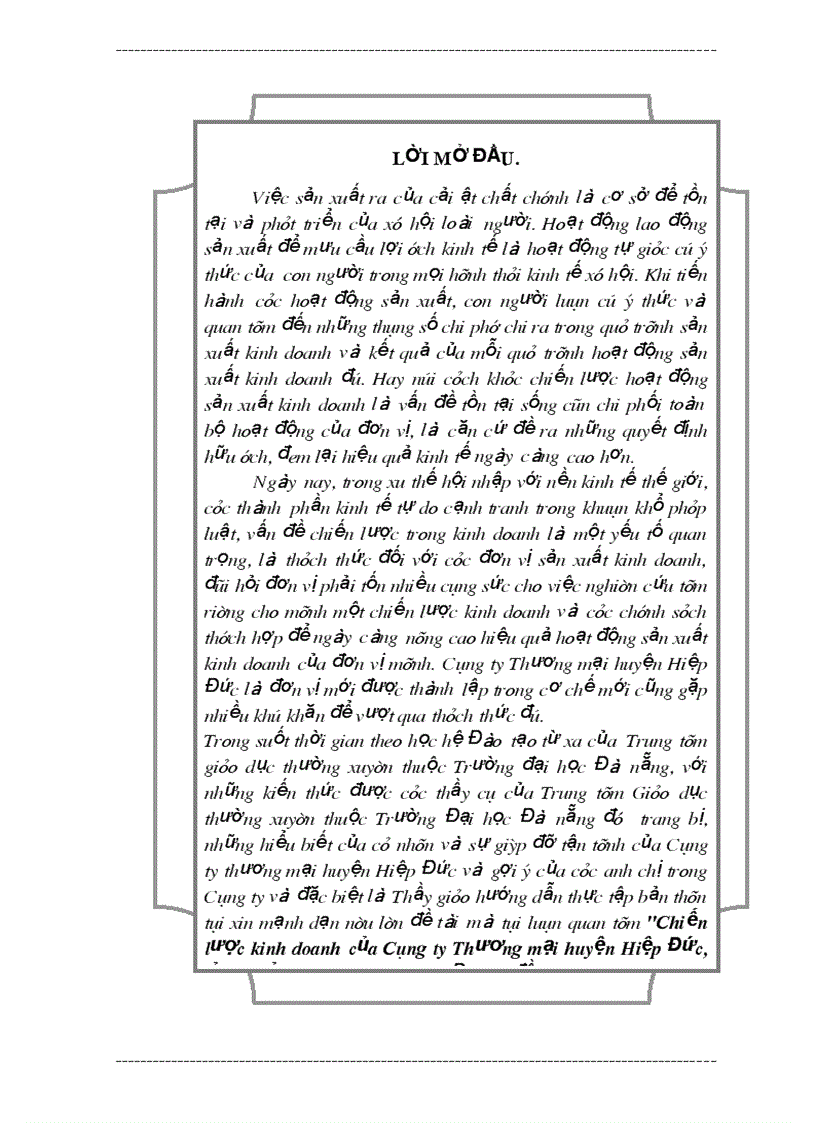 LỜI MỞ ĐẦU.
Việc sản xuất ra của cải ật chất chớnh là cơ sở để tồn
tại và phỏt triển của xó hội loài người. Hoạt động lao động
sản xuất để mưu cầu lợi ớch kinh tế là hoạt động tự giỏc cú ý
thức của con người trong mọi hỡnh thỏi kinh tế xó hội. Khi tiến
hành cỏc hoạt động sản xuất, con người luụn cú ý thức và
quan tõm đến những thụng số chi phớ chi ra trong quỏ trỡnh sản
xuất kinh doanh và kết quả của mỗi quỏ trỡnh hoạt động sản
xuất kinh doanh đú. Hay núi cỏch khỏc chiến lược hoạt động
sản xuất kinh doanh là vấn đề tồn tại sống cũn chi phối toàn
bộ hoạt động của đơn vị, là căn cứ đề ra những quyết định
hữu ớch, đem lại hiệu quả kinh tế ngày càng cao hơn.
Ngày nay, trong xu thế hội nhập với nền kinh tế thế giới,
cỏc thành phần kinh tế tự do cạnh tranh trong khuụn khổ phỏp
luật, vấn đề chiến lược trong kinh doanh là một yếu tố quan
trọng, là thỏch thức đối với cỏc đơn vị sản xuất kinh doanh,
đũi hỏi đơn vị phải tốn nhiều cụng sức cho việc nghiờn cứu tỡm
riờng cho mỡnh một chiến lược kinh doanh và cỏc chớnh sỏch
thớch hợp để ngày càng nõng cao hiệu quả hoạt động sản xuất
kinh doanh của đơn vị mỡnh. Cụng ty Thương mại huyện Hiệp
Đức là đơn vị mới được thành lập trong cơ chế mới cũng gặp
nhiều khú khăn để vượt qua thỏch thức đú.
Trong suốt thời gian theo học hệ Đào tạo từ xa của Trung tõm
giỏo dục thường xuyờn thuộc Trường đại học Đà nẵng, với
những kiến thức được cỏc thầy cụ của Trung tõm Giỏo dục
thường xuyờn thuộc Trường Đại học Đà nẵng đó trang bị,
những hiểu biết của cỏ nhõn và sự giỳp đỡ tận tỡnh của Cụng
ty thương mại huyện Hiệp Đức và gợi ý của cỏc anh chị trong
Cụng ty và đặc biệt là Thầy giỏo hướng dẫn thực tập bản thõn
tụi xin mạnh dạn nờu lờn đề tài mà tụi luụn quan tõm "Chiến
lược kinh doanh của Cụng ty Thương mại huyện Hiệp Đức,